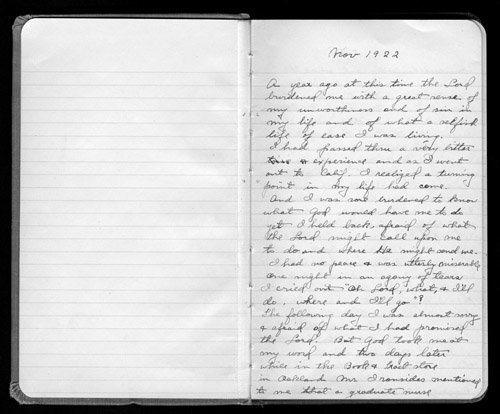 Nov 1922
A year ago at this time the Lord
burdened me with a great sense of
my unworthiness and of sin in
my life and of what a selfish
life of ease I was living.
I had passed thru a very bitter
experience and as I went
out to Calif. I realized a turning
point in my life had come.
And I was burdened to know
what God would have me to do
yet I held back, afraid of what
the Lord might call upon me
to do and where He might send me.
I had no peace & was utterly miserable
One night in an agony of tears
I cried out "Oh Lord, what, & I'll
do, where and I'll go"?
The following day I was almost sorry
& afraid of what I had promised
the Lord. But God took me at
my word and two days later
while in the Book & Trait store
in Oakland Mr Ironsides mentioned
to me that a graduate nurse